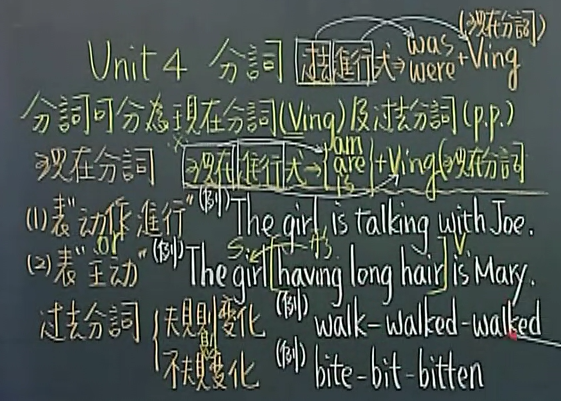 (現在分詞)
Unit 4 分詞 过去進行式→was were+Ving
分詞可分為現在分詞(Ving)及过去分詞(p.p.)
現在分詞 現在進行式→{am are is}+Ving(現在分詞
(1)表"动作進行" (例) The girl is talking with Joe.
or
(2)表"主动" (例) The girl [having long hair] is Mary.
S V
过去分詞 {規則变化 (例) walk-walked-walked
不規則变化 (例) bite-bit-bitten